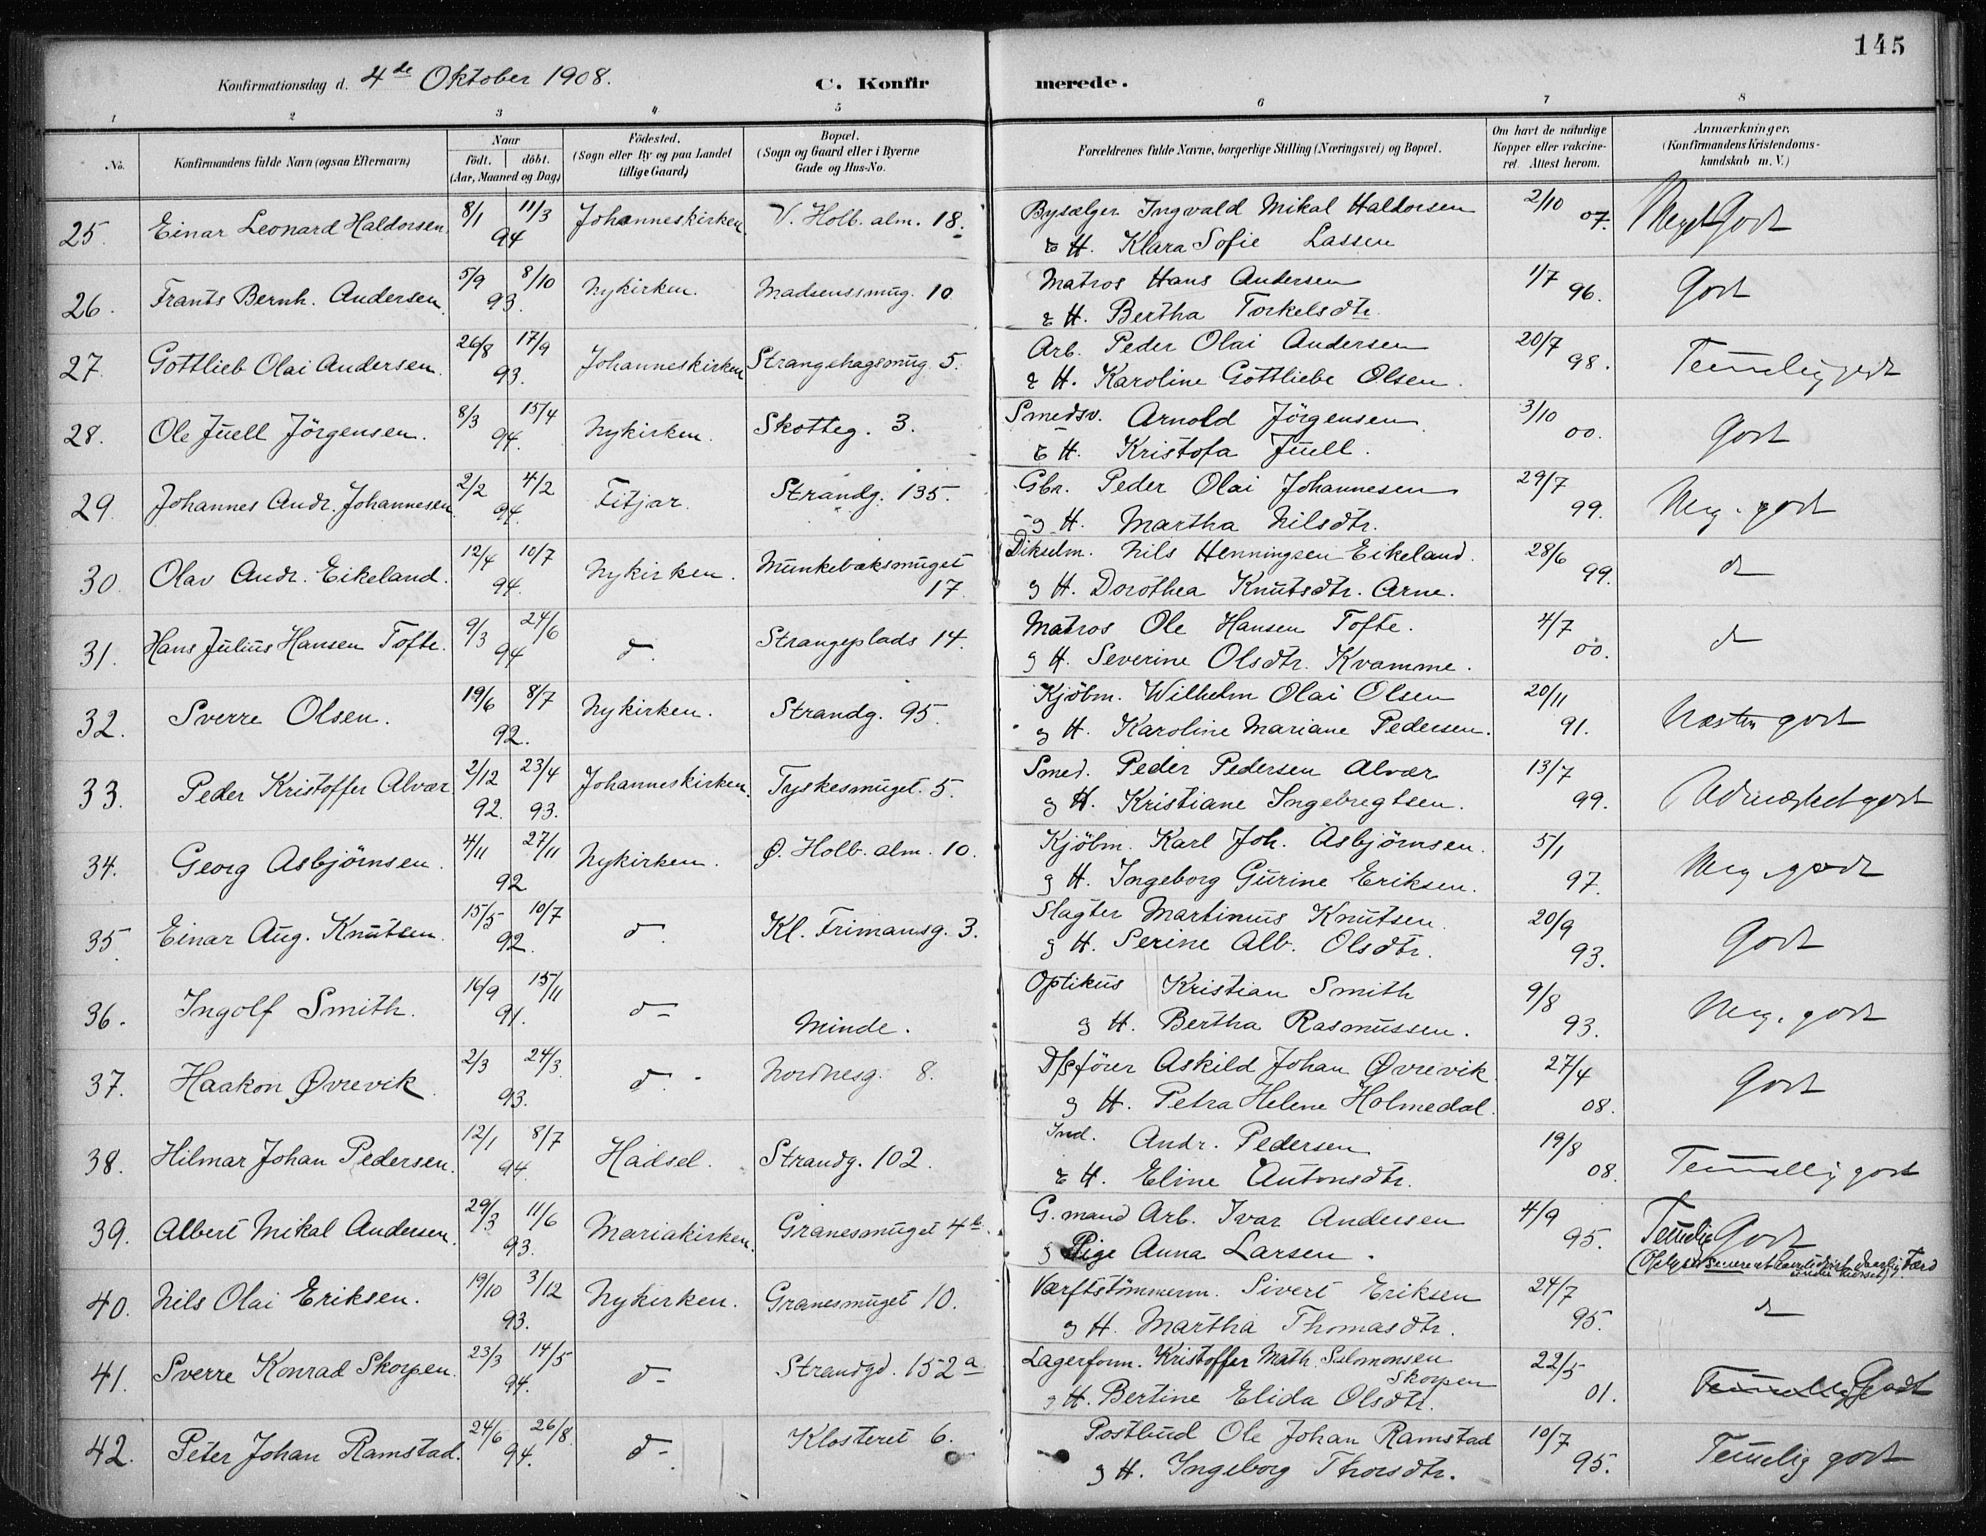 145
Konfirmationsdag d. 4de Oktober 1908. C. Konfirmerede.
1 2 3 4 5 6 7 8
No. Konfirmandens fulde Navn (ogsaa Efternavn) Naar født. døbt. (Aar, Maaned og Dag) Fødested. (Sogn eller By og paa Landet tillige Gaard) Bopæl. (Sogn og Gaard eller i Byerne Gade og Hus-No. Forældrenes fulde Navne, borgerlige Stilling (Næringsvei) og Bopæl. Om havt de naturlige Kopper eller vakcineret. Attest herom. Anmærkninger. (Konfirmandens Kristendomskundskab m. V.)
25. Einar Leonard Haldorsen. 8/1 11/3 94 Johanneskirken. V. Holb. alm. 18. Bysælger Ingvald Mikal Haldorsen 2/10 07. Meget Godt
& H. Klara Sofie Lassen
26. Frants Bernh. Andersen. 5/9 8/10 93. Nykirken. Madsenssmug. 10 Matros Hans Andersen 1/7 96. Godt
& H. Bertha Torkelsdtr.
27. Gottlieb Olai Andersen. 26/8 17/9 93. Johanneskirken Strangehagsmug. 5. Arb. Peder Olai Andersen 20/7 98. Temmelig godt
& H. Karoline Gottliebe Olsen.
28. Ole Juell Jörgensen. 8/3 15/4 94. Nykirken. Skotteg. 3. Smedsv. Arnold Jörgensen 3/10 00. Godt
& H. Kristofa Juell.
29. Johannes Andr. Johannesen. 2/2 4/2 94. Fitjar. Strandg. 135. Gbr. Peder Olai Johannesen 29/7 99. Meg. godt
g H. Martha Nilsdtr.
30. Olav Andr. Eikeland. 12/4 10/7 94. Nykirken. Munkebæksmuget 17. Nils Henningsen Eikeland. 28/6 99. d
g H. Dorothea Knutsdtr. Arne.
31. Hans Julius Hansen Tofte. 9/3 24/6 94 d. Strangeplads 14. Matros Ole Hansen Tofte. 4/7 00. d
g H. Severine Olsdtr. Kvamme.
32. Sverre Olsen. 19/6 8/7 92. Nykirken. Strandg. 95. Kjøbm. Wilhelm Olai Olsen 20/11 91. Næsten godt
g H. Karoline Mariane Pedersen.
33. Peder Kristoffer Alvær. 2/12 92. 23/4 93. Johanneskirken. Tyskesmuget. 5. Smed. Peder Pedersen Alvær 13/7 99. Udmærket godt
g H. Kristiane Ingebregtsen.
34. Georg Asbjørnsen. 4/11 27/11 92 Nykirken. Ø. Holb. alm. 10. Kjöbm. Karl Joh. Asbjørnsen. 5/1 97. Meg. godt
g H. Ingeborg Gurine Eriksen.
35. Einar Aug. Knutsen. 15/5 10/7 92. d. Kl. Frimansg. 3. Slagter Martinus Knutsen. 20/9 93. Godt
g H. Serine Alb. Olsdtr.
36. Ingolf Smith. 16/9 15/11 91. d Minde. Optikus Kristian Smith 9/8 93. Meg. godt
g H. Bertha Rasmussen.
37. Haakon Øvrevik. 2/3 24/3. 93. d. Nordnesg. 8. D/sfører Askild Johan Øvrevik. 27/4 08. Godt
g H. Petra Helene Holmedal.
38. Hilmar Johan Pedersen. 12/1 8/7 94. Hadsel. Strandg. 102. Ind. Andr. Pedersen 19/8 08. Temmelig godt
& H. Eline Antonsdtr.
39. Albert Mikal Andersen. 29/3 11/6 93. Mariakirken. Granesmuget 4b. G. mand Arb. Ivar Andersen 4/9 95. Temmelig Godt
g Pige Anna Larsen.
40. Nils Olai Eriksen. 19/10 3/12 93. Nykirken. Granesmuget 10. Værftstömmerm. Sivert Eriksen 24/7 95. d
g H. Martha Thomasdtr.
41. Sverre Konrad Skorpen. 23/3 14/5 94. d Strandgd. 152a Lagerform. Kristoffer Math. Salomonsen Skorpen 22/5 01. Temmelig Godt
g H. Bertine Elida Olsdtr.
42. Peter Johan Ramstad. 24/6 26/8. 94. d Klosteret 6. Postbud Ole Johan Ramstad 10/7 95. Temmelig godt
g H. Ingeborg Thorsdtr.